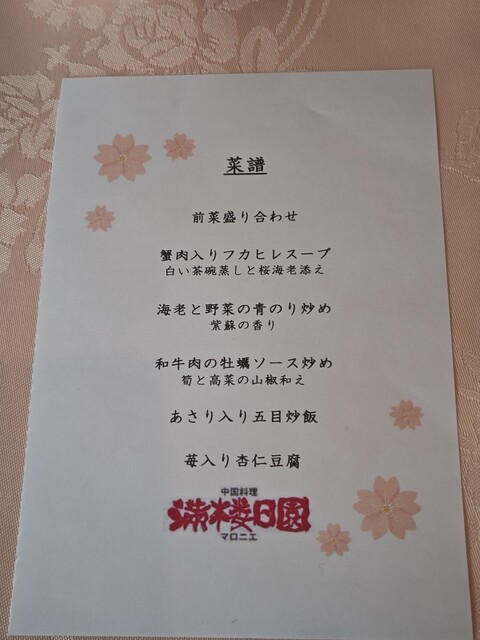 菜譜
前菜盛り合わせ
蟹肉入りフカヒレスープ
白い茶碗蒸しと桜海老添え
海老と野菜の青のり炒め
紫蘇の香り
和牛肉の牡蠣ソース炒め
筍と高菜の山椒和え
あさり入り五目炒飯
苺入り杏仁豆腐
中国料理
マロニエ